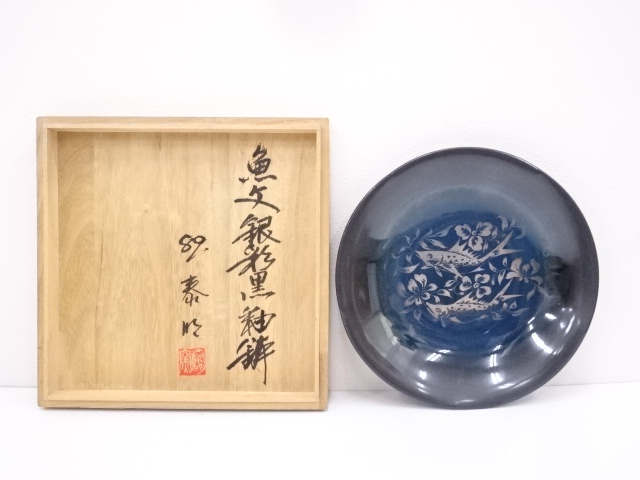 魚文銀彩黒釉鉢
89. 泰明